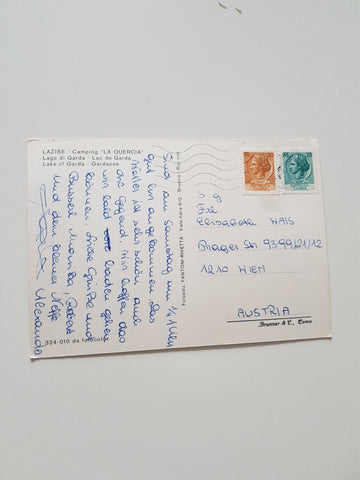 LAZISE - Camping "LA QUERCIA"
Lago di Garda - Lac de Garda
Lake of Garda - Gardasee
Sind am Samstag um 1/2 1 Uhr
gut hier angekommen. Das
Wetter ist sehr schön auch
die Gegend. Wir hoffen das
wir bald baden gehen
können. Liebe Grüße und
Busserl Monika, Robert
und dein kleiner Neffe
Alexander
324-010 da fotocolor
Fotoediz. FANTONI-RIVETTA
S g
Frl.
Elisabeth WAIS
Prager Str 93-99/21/12
1210 WIEN
AUSTRIA
Brunner & C., Como